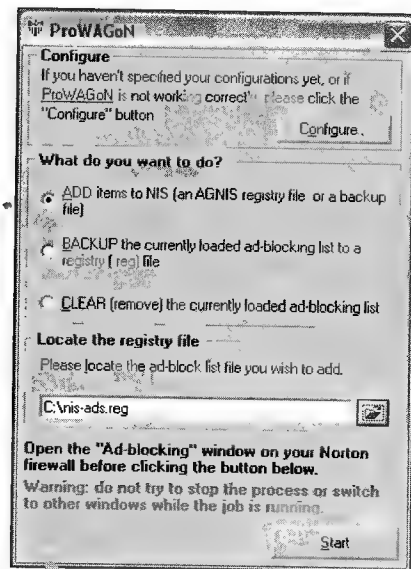 ProWAGoN
Configure
If you haven't specified your configurations yet, or if
ProWAGoN is not working correctl please click the
"Configure" button
Configure.
What do you want to do?
ADD items to NIS (an AGNIS registry file or a backup
file)
BACKUP the currently loaded ad-blocking list to a
registry ( reg) file
CLEAR (remove) the currently loaded ad-blocking list
Locate the registry file
Please locate the ad-block list file you wish to add.
C:\nis-ads.reg
Open the "Ad-blocking" window on your Norton
firewall before clicking the button below.
Warning: do not try to stop the process or switch
to other windows while the job is running.
Start